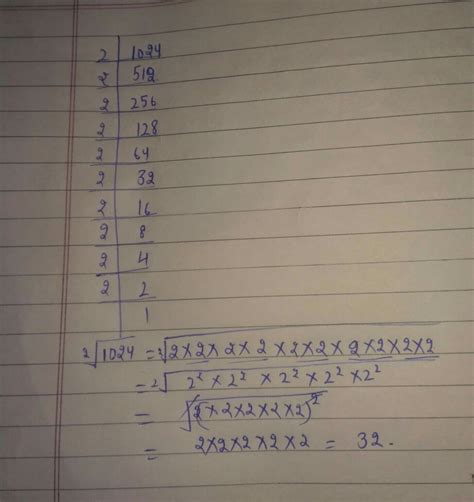 2 | 1024
2 | 512
2 | 256
2 | 128
2 | 64
2 | 32
2 | 16
2 | 8
2 | 4
2 | 2
| 1
²√1024 = ²√2×2×2×2×2×2×2×2×2×2
= ²√2² × 2² × 2² × 2² × 2²
= √(2×2×2×2×2)²
= 2×2×2×2×2 = 32.